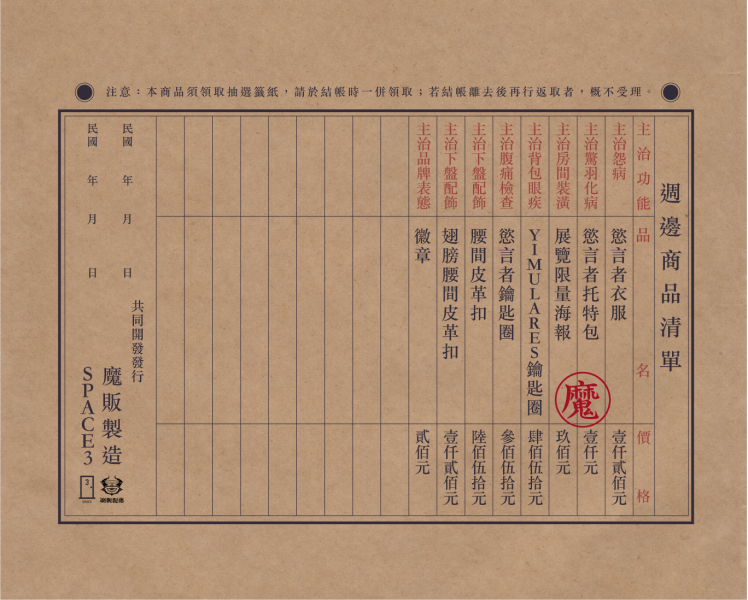 注意：本商品須領取抽選籤紙，請於結帳時一併領取；若結帳離去後再行返取者，概不受理。
週邊商品清單
主治功能
品名
價格
主治怨病
慾言者衣服
壹仟貳佰元
主治驚羽化病
慾言者托特包
壹仟元
主治房間裝潢
展覽限量海報
玖佰元
魔
主治背包眼疾
YIMULARES鑰匙圈
肆佰伍拾元
主治腹痛檢查
慾言者鑰匙圈
參佰伍拾元
主治下盤配飾
腰間皮革扣
陸佰伍拾元
主治下盤配飾
翅膀腰間皮革扣
壹仟貳佰元
主治品牌表態
徽章
貳佰元
民國 年 月 日
民國 年 月 日
共同開發發行
魔販製造
SPACE3
3